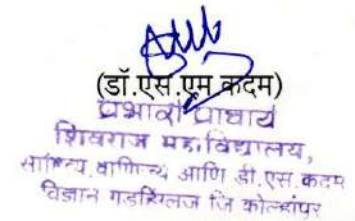 (डॉ.एस.एम कदम)
प्रभारी प्राचार्य
शिवराज महाविद्यालय,
साहित्य, वाणिज्य आणि डी.एस. कदम
विज्ञान गडहिंग्लज जि कोल्हापूर